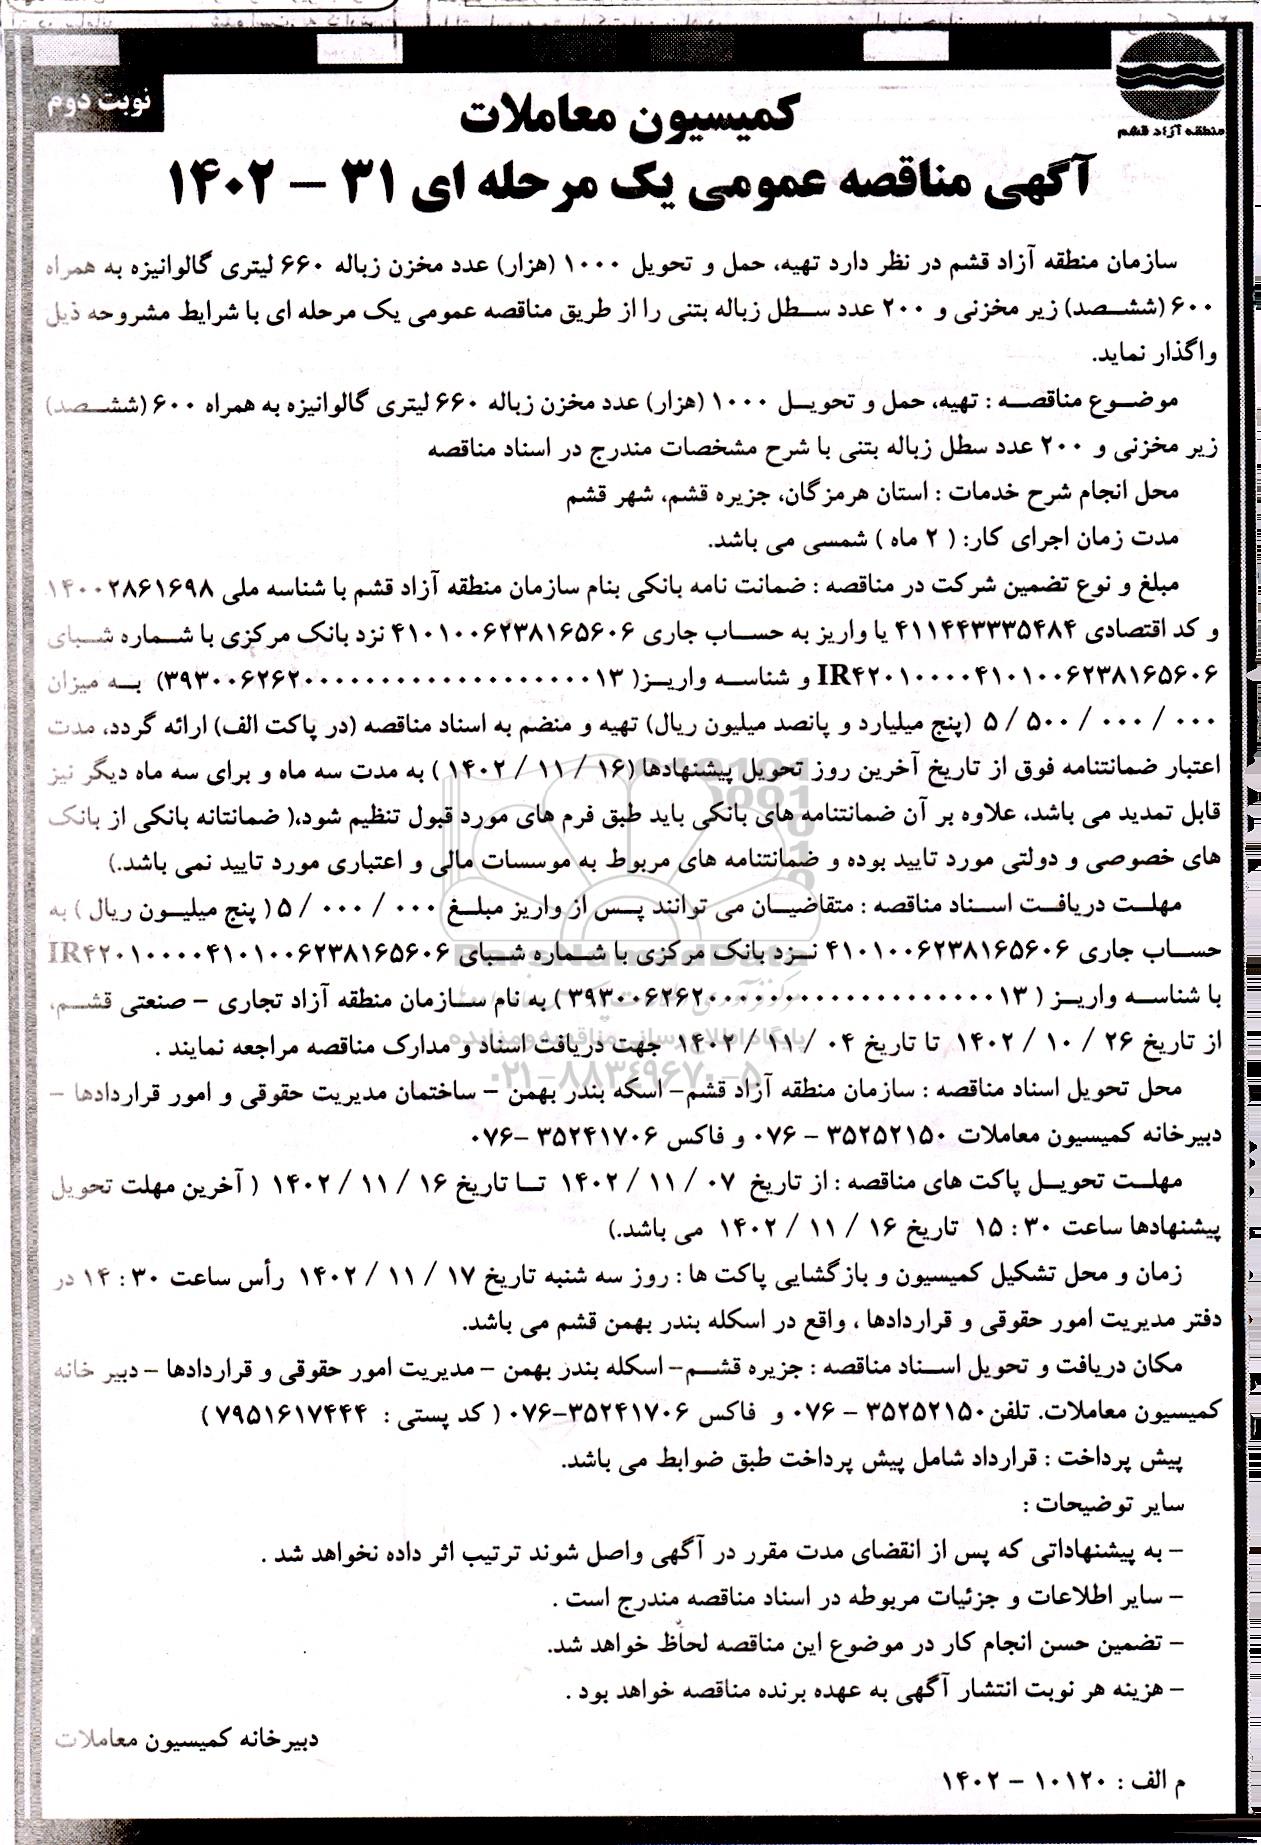 منطقه آزاد قشم
نوبت دوم
کمیسیون معاملات
آگهی مناقصه عمومی یک مرحله ای ۳۱ – ۱۴۰۲
سازمان منطقه آزاد قشم در نظر دارد تهیه، حمل و تحویل ۱۰۰۰ (هزار) عدد مخزن زباله ۶۶۰ لیتری گالوانیزه به همراه
۶۰۰ (ششصد) زیر مخزنی و ۲۰۰ عدد سطل زباله بتنی را از طریق مناقصه عمومی یک مرحله ای با شرایط مشروحه ذیل
واگذار نماید.
موضوع مناقصه : تهیه، حمل و تحویل ۱۰۰۰ (هزار) عدد مخزن زباله ۶۶۰ لیتری گالوانیزه به همراه ۶۰۰ (ششصد)
زیر مخزنی و ۲۰۰ عدد سطل زباله بتنی با شرح مشخصات مندرج در اسناد مناقصه
محل انجام شرح خدمات : استان هرمزگان، جزیره قشم، شهر قشم
مدت زمان اجرای کار: ( ۲ ماه ) شمسی می باشد.
مبلغ و نوع تضمین شرکت در مناقصه : ضمانت نامه بانکی بنام سازمان منطقه آزاد قشم با شناسه ملی ۱۴۰۰۲۸۶۱۶۹۸
و کد اقتصادی ۴۱۱۴۴۳۳۳۵۴۸۴ یا واریز به حساب جاری ۴۱۰۱۰۰۶۲۳۸۱۶۵۶۰۶ نزد بانک مرکزی با شماره شبای
IR۴۲۰۱۰۰۰۰۴۱۰۱۰۰۶۲۳۸۱۶۵۶۰۶ و شناسه واریز( ۳۹۳۰۰۶۲۶۲۰۰۰۰۰۰۰۰۰۰۰۰۰۰۰۰۰۰۰۱۳) به میزان
۵ / ۵۰۰ / ۰۰۰ / ۰۰۰ (پنج میلیارد و پانصد میلیون ریال) تهیه و منضم به اسناد مناقصه (در پاکت الف) ارائه گردد، مدت
اعتبار ضمانتنامه فوق از تاریخ آخرین روز تحویل پیشنهادها (۱۶ / ۱۱ / ۱۴۰۲ ) به مدت سه ماه و برای سه ماه دیگر نیز
قابل تمدید می باشد، علاوه بر آن ضمانتنامه های بانکی باید طبق فرم های مورد قبول تنظیم شود،( ضمانتانه بانکی از بانک
های خصوصی و دولتی مورد تایید بوده و ضمانتنامه های مربوط به موسسات مالی و اعتباری مورد تایید نمی باشد.)
مهلت دریافت اسناد مناقصه : متقاضیان می توانند پس از واریز مبلغ ۰۰۰ / ۰۰۰ / ۵ ( پنج میلیون ریال ) به
حساب جاری ۴۱۰۱۰۰۶۲۳۸۱۶۵۶۰۶ نزد بانک مرکزی با شماره شبای IR۴۲۰۱۰۰۰۰۴۱۰۱۰۰۶۲۳۸۱۶۵۶۰۶
با شناسه واریز ( ۳۹۳۰۰۶۲۶۲۰۰۰۰۰۰۰۰۰۰۰۰۰۰۰۰۰۰۰۱۳ ) به نام سازمان منطقه آزاد تجاری – صنعتی قشم،
از تاریخ ۲۶ / ۱۰ / ۱۴۰۲ تا تاریخ ۰۴ / ۱۱ / ۱۴۰۲ جهت دریافت اسناد و مدارک مناقصه مراجعه نمایند .
محل تحویل اسناد مناقصه : سازمان منطقه آزاد قشم– اسکه بندر بهمن – ساختمان مدیریت حقوقی و امور قراردادها –
دبیرخانه کمیسیون معاملات ۳۵۲۵۲۱۵۰ – ۰۷۶ و فاکس ۳۵۲۴۱۷۰۶ –۰۷۶
مهلت تحویل پاکت های مناقصه : از تاریخ ۰۷ / ۱۱ / ۱۴۰۲ تا تاریخ ۱۶ / ۱۱ / ۱۴۰۲ ( آخرین مهلت تحویل
پیشنهادها ساعت ۳۰ : ۱۵ تاریخ ۱۶ / ۱۱ / ۱۴۰۲ می باشد.)
زمان و محل تشکیل کمیسیون و بازگشایی پاکت ها : روز سه شنبه تاریخ ۱۷ / ۱۱ / ۱۴۰۲ رأس ساعت ۳۰ : ۱۴ در
دفتر مدیریت امور حقوقی و قراردادها ، واقع در اسکله بندر بهمن قشم می باشد.
مکان دریافت و تحویل اسناد مناقصه : جزیره قشم– اسکله بندر بهمن – مدیریت امور حقوقی و قراردادها – دبیر خانه
کمیسیون معاملات. تلفن ۳۵۲۵۲۱۵۰ – ۰۷۶ و فاکس ۳۵۲۴۱۷۰۶–۰۷۶ ( کد پستی : ۷۹۵۱۶۱۷۴۴۴ )
پیش پرداخت : قرارداد شامل پیش پرداخت طبق ضوابط می باشد.
سایر توضیحات :
– به پیشنهاداتی که پس از انقضای مدت مقرر در آگهی واصل شوند ترتیب اثر داده نخواهد شد .
– سایر اطلاعات و جزئیات مربوطه در اسناد مناقصه مندرج است .
– تضمین حسن انجام کار در موضوع این مناقصه لحاظ خواهد شد.
– هزینه هر نوبت انتشار آگهی به عهده برنده مناقصه خواهد بود .
دبیرخانه کمیسیون معاملات
م الف : ۱۰۱۲۰ – ۱۴۰۲
ParsNamadData
پایگاه اطلاع رسانی مناقصه و مزایده
۰۲۱–۸۸۳۴۹۶۷۰–۵